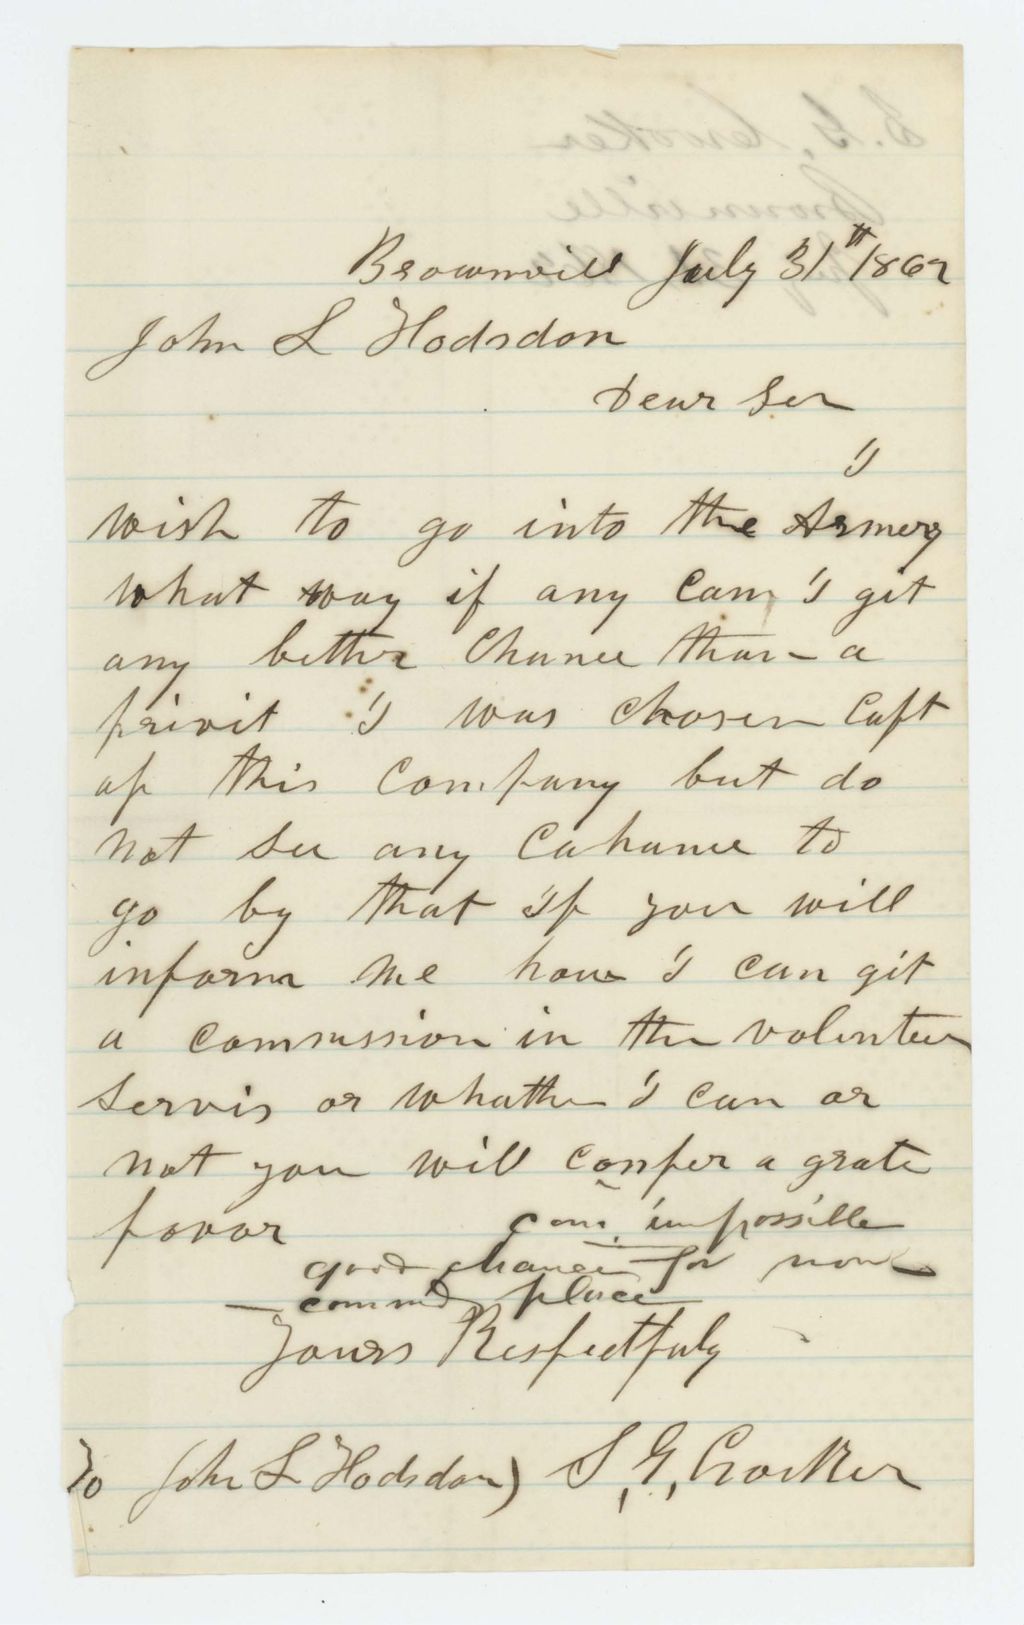 Brownvill July 31th 1862
John L Hodsdon
Dear Ser
I
wish to go into the Armery
what way if any can I git
any bether Chance than a
privit I was chosen Capt
of this Company but do
not see any Cahance to
go by that if you will
inform me how I can git
a commission in the volenteer
servis or whather I can or
not you will confer a grate
favor
com. impossible
good chance for non
commd place
Yours Respectfuly
To John L Hodsdon) S, G, Crocker